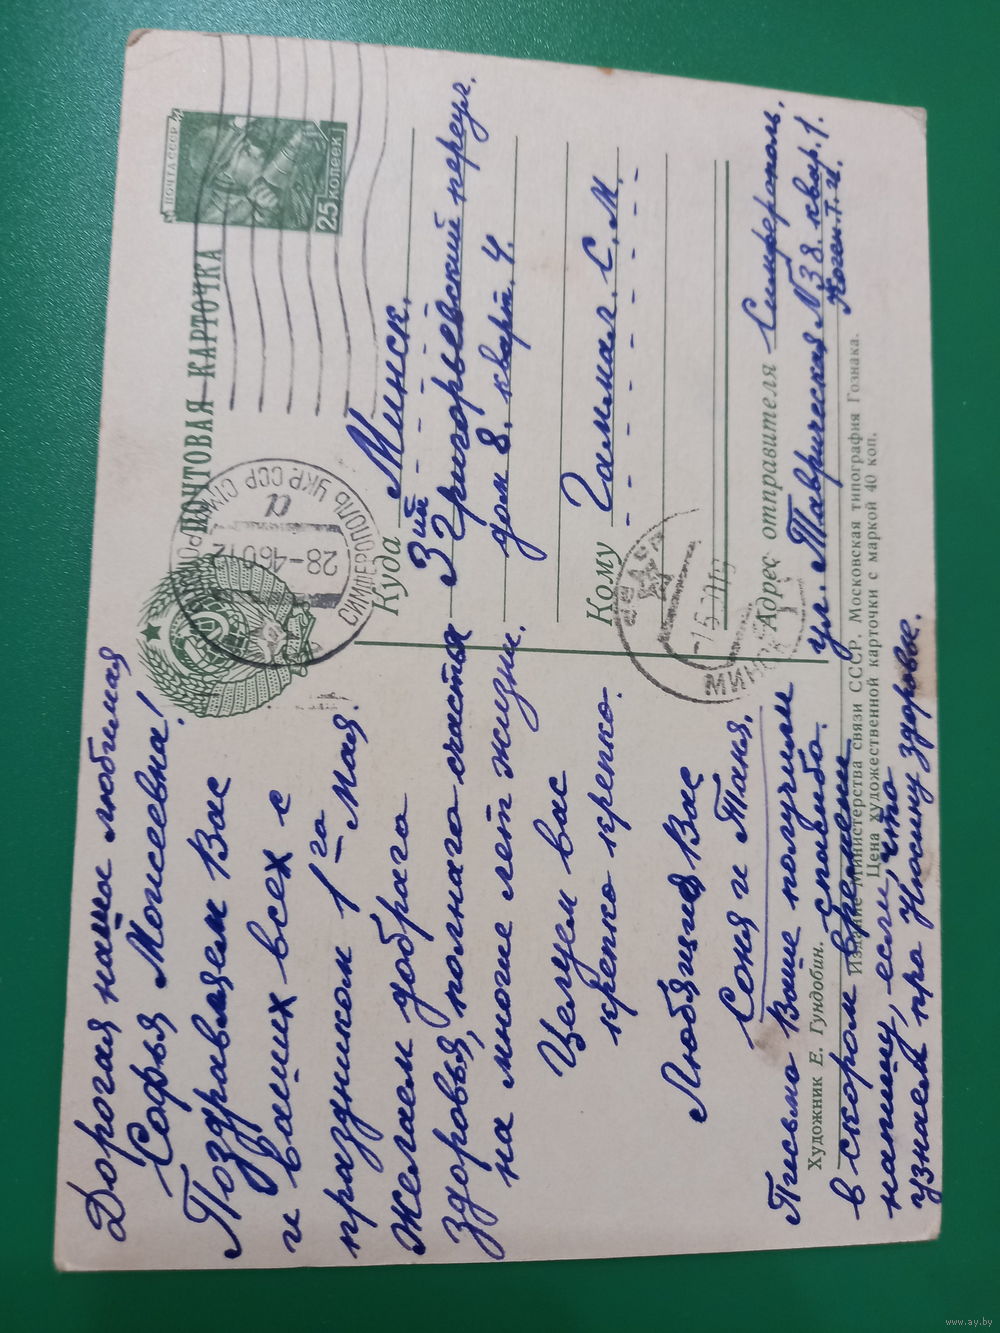 Дорогая наша любимая
Софья Моисеевна!
Поздравляем Вас
и ваших всех с
праздником 1го Мая.
Желаем добраго
здоровья, полнаго счастья
на многие лет жизни.
Целуем вас
крепко крепко.
Любящия Вас
Соня и Таня.
Письмо Ваше получили
спасибо.
в скором времени
напишу, если, что
узнаем про Нюсину здоровье.
ПОЧТА СССР
25 КОПЕЕК
ПОЧТОВАЯ КАРТОЧКА
СИМФЕРОПОЛЬ УКР. ССР
28-4
а
Куда Минск.
3ий Григорьевский переул.
дом 8. кварт. 4.
Кому Гаммал. С. М.
Адрес отправителя Симферополь.
ул. Таврическая №38. квар. 1.
Коген. Т. И.
Художник Е. Гундобин. Издание Министерства связи СССР. Московская типография Гознака.
Цена художественной карточки с маркой 40 коп.
www.ay.by